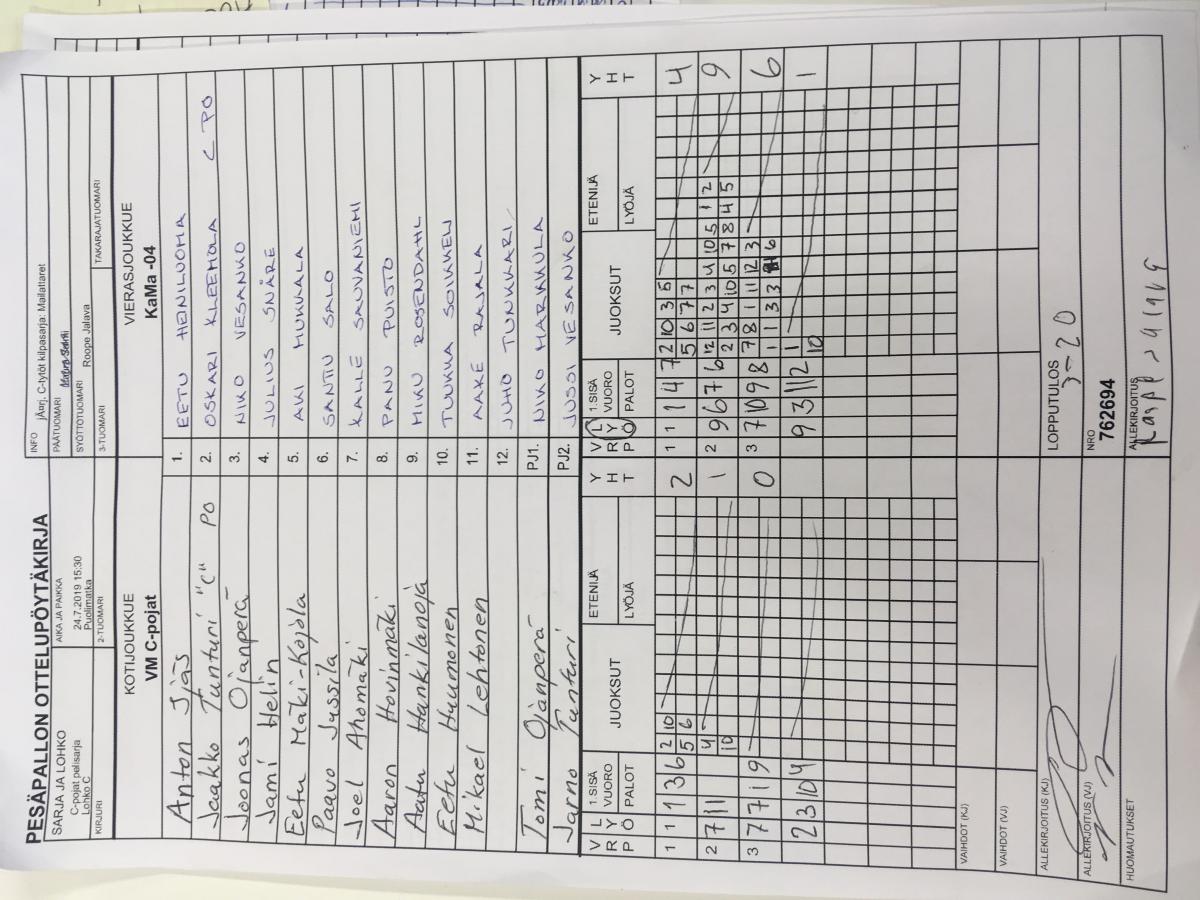 PESÄPALLON OTTELUPÖYTÄKIRJA
SARJA JA LOHKO
C-pojat pelisarja
Lohko C
AIKA JA PAIKKA
24.7.2019 15:30
Puolimatka
INFO jÄorj, C-tytöt kilpasarja: Mailattaret
PÄÄTUOMARI
SYÖTTÖTUOMARI Roope Jalava
KIRJURI
2-TUOMARI
3-TUOMARI
TAKARAJATUOMARI
KOTIJOUKKUE
VM C-pojat
VIERASJOUKKUE
KaMa -04
Anton Ijäs 1. EETU HEINILUOMA
Jaakko Tunturi "C" PO 2. OSKARI KLEEMOLA C PO
Joonas Ojanperä 3. NIKO VESANKO
Jami Helin 4. JULIUS SNÅRE
Eetu Mäki-Kojola 5. AKI HUKKALA
Paavo Jussila 6. SANTTU SALO
Joel Ahomäki 7. KALLE SAUVANIEMI
Aaron Hovinmäki 8. PANU PUISTO
Aatu Hankilanoja 9. MIKU ROSENDAHL
Eetu Huumonen 10. TUUKKA SOIKKELI
Mikael Lehtonen 11. AAKE RAJALA
12. JUHO TUNKKARI
Tomi Ojanperä PJ1. NIKO MARKKULA
Jarno Tunturi PJ2. JUSSI VESANKO
V R P L Y Ö 1.SISÄ VUORO PALOT JUOKSUT ETENIJÄ LYÖJÄ Y H T
V R P L Y Ö 1.SISÄ VUORO PALOT JUOKSUT ETENIJÄ LYÖJÄ Y H T
1 1 1 3 6 2 10 2
5 6
1 1 1 4 7 2 10 3 5 4
5 6 7 7
2 7 11 4 1
10
2 9 6 7 6 12 11 2 3 4 10 5 1 2 9
2 3 4 10 5 7 8 4 5
3 7 7 1 9 0
3 7 10 9 8 7 8 1 11 12 3 6
1 1 3 3 6
12 3 10 4
9 3 11 2 1 1
10
VAIHDOT (KJ)
VAIHDOT (VJ)
ALLEKIRJOITUS (KJ)
LOPPUTULOS
3-20
ALLEKIRJOITUS (VJ)
NRO
762694
HUOMAUTUKSET
ALLEKIRJOITUS